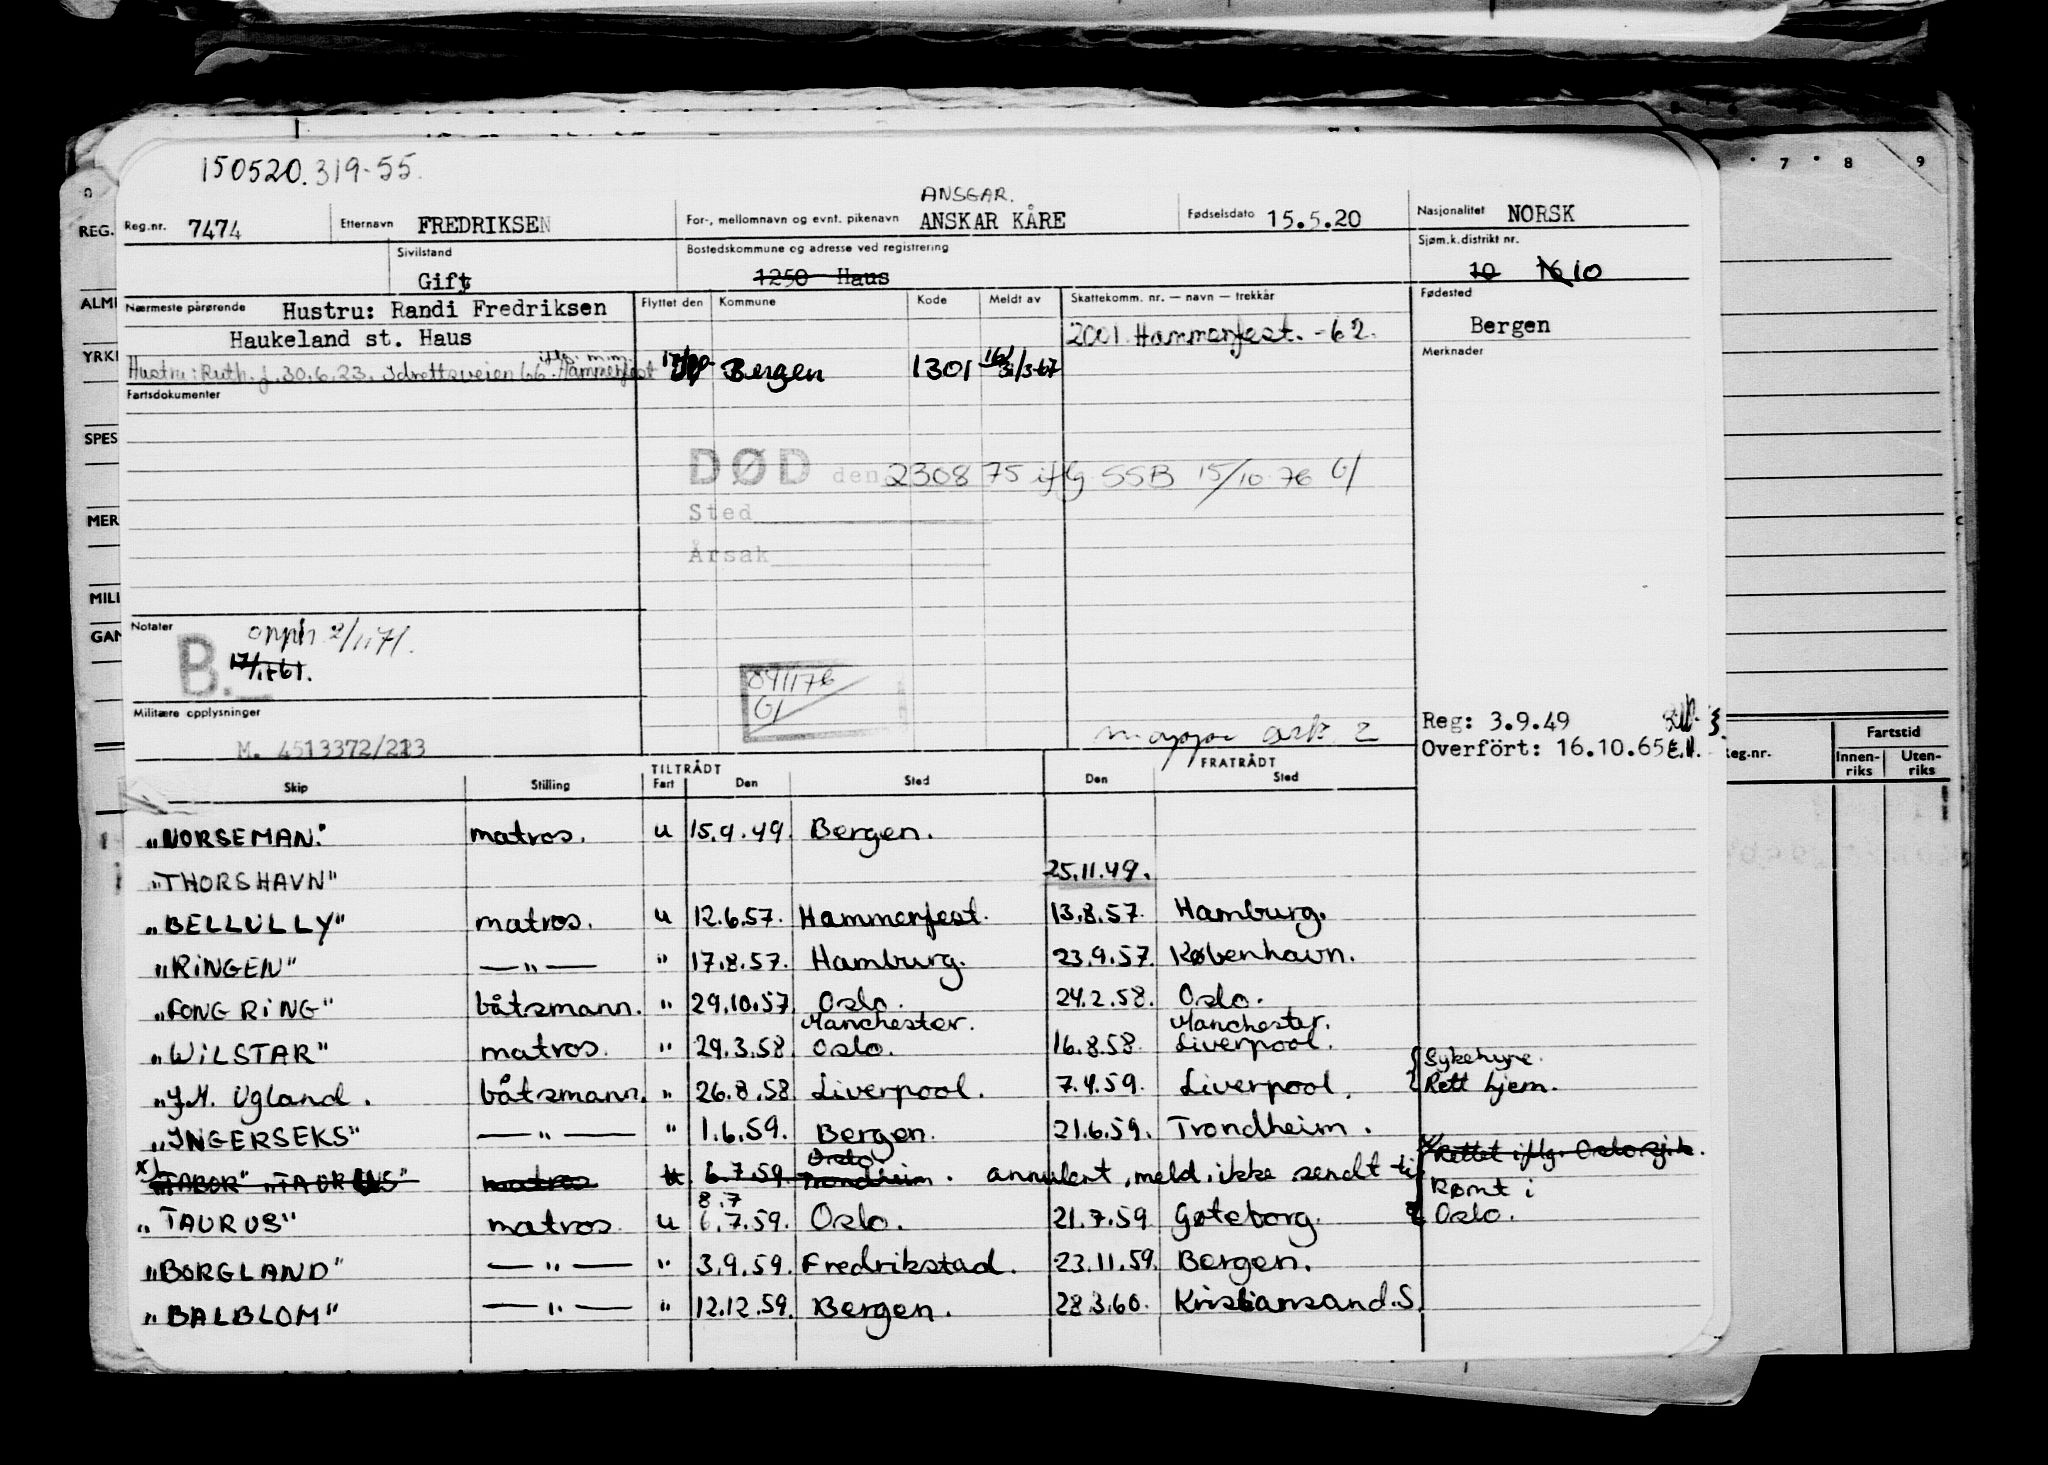 150520.319-55.
ANSGAR.
Reg.nr. 7474 Etternavn FREDRIKSEN For-, mellomnavn og evnt. pikenavn ANSKAR KÅRE Fødselsdato 15.5.20 Nasjonalitet NORSK
Sivilstand Gift Bostedskommune og adresse ved registrering 1250 Haus Sjøm.k.distrikt nr. 10 16 10
Nærmeste pårørende Hustru: Randi Fredriksen Flyttet den Kommune Kode Meldt av Skattekomm. nr. — navn — trekkår Fødested
Haukeland st. Haus 2001 Hammerfest. -62. Bergen
iflg. m.m.
Hustru: Ruth f. 30.6.23. Idrettsveien 66. Hammerfest Bergen 1301 31/3-67 Merknader
Fartsdokumenter
DØD den 230875 iflg SSB 15/10-76 G/
Sted
Årsak
Notater
B. opph 2/1171.
17/1-61.
Militære opplysninger
M. 4513372/213
mappe ark 2
Reg: 3.9.49
Overfört: 16.10.65
Skip Stilling TILTRÅDT Fart Den Sted FRATRÅDT Den Sted
"NORSEMAN." matros. u 15.9.49. Bergen.
"THORSHAVN" 25.11.49.
"BELLULLY" matros. u 12.6.57. Hammerfest. 13.8.57. Hamburg.
"RINGEN" —"— " 17.8.57. Hamburg. 23.9.57. København.
"FONG RING" båtsmann. " 29.10.57 Oslo. 24.2.58. Oslo.
Manchester. Manchester.
"WILSTAR" matros. " 29.3.58. Oslo. 16.8.58. Liverpool. Sykehyre.
"J.M. Ugland. båtsmann. " 26.8.58 Liverpool. 7.4.59. Liverpool. Rett hjem.
"INGERSEKS" —"— " 1.6.59. Bergen. 21.6.59. Trondheim.
Oslo. x) Rettet iflg. Oslo
x) "TABOR" "TAURUS" matros u 6.7.59 Trondheim. annulert, meld. ikke sendt til Rømt i
8.7
"TAURUS" matros. u 6.7.59. Oslo. 21.7.59 Gøteborg. Oslo.
"BORGLAND" —"— " 3.9.59. Fredrikstad. 23.11.59. Bergen.
"BALBLOM" —"— " 12.12.59. Bergen. 28.3.60. Kristiansand.S.
7 8 9
REG.
ALMI
YRKE
SPES
MER
MILI
GAN
Reg.nr. Fartstid
Innen-riks Uten-riks